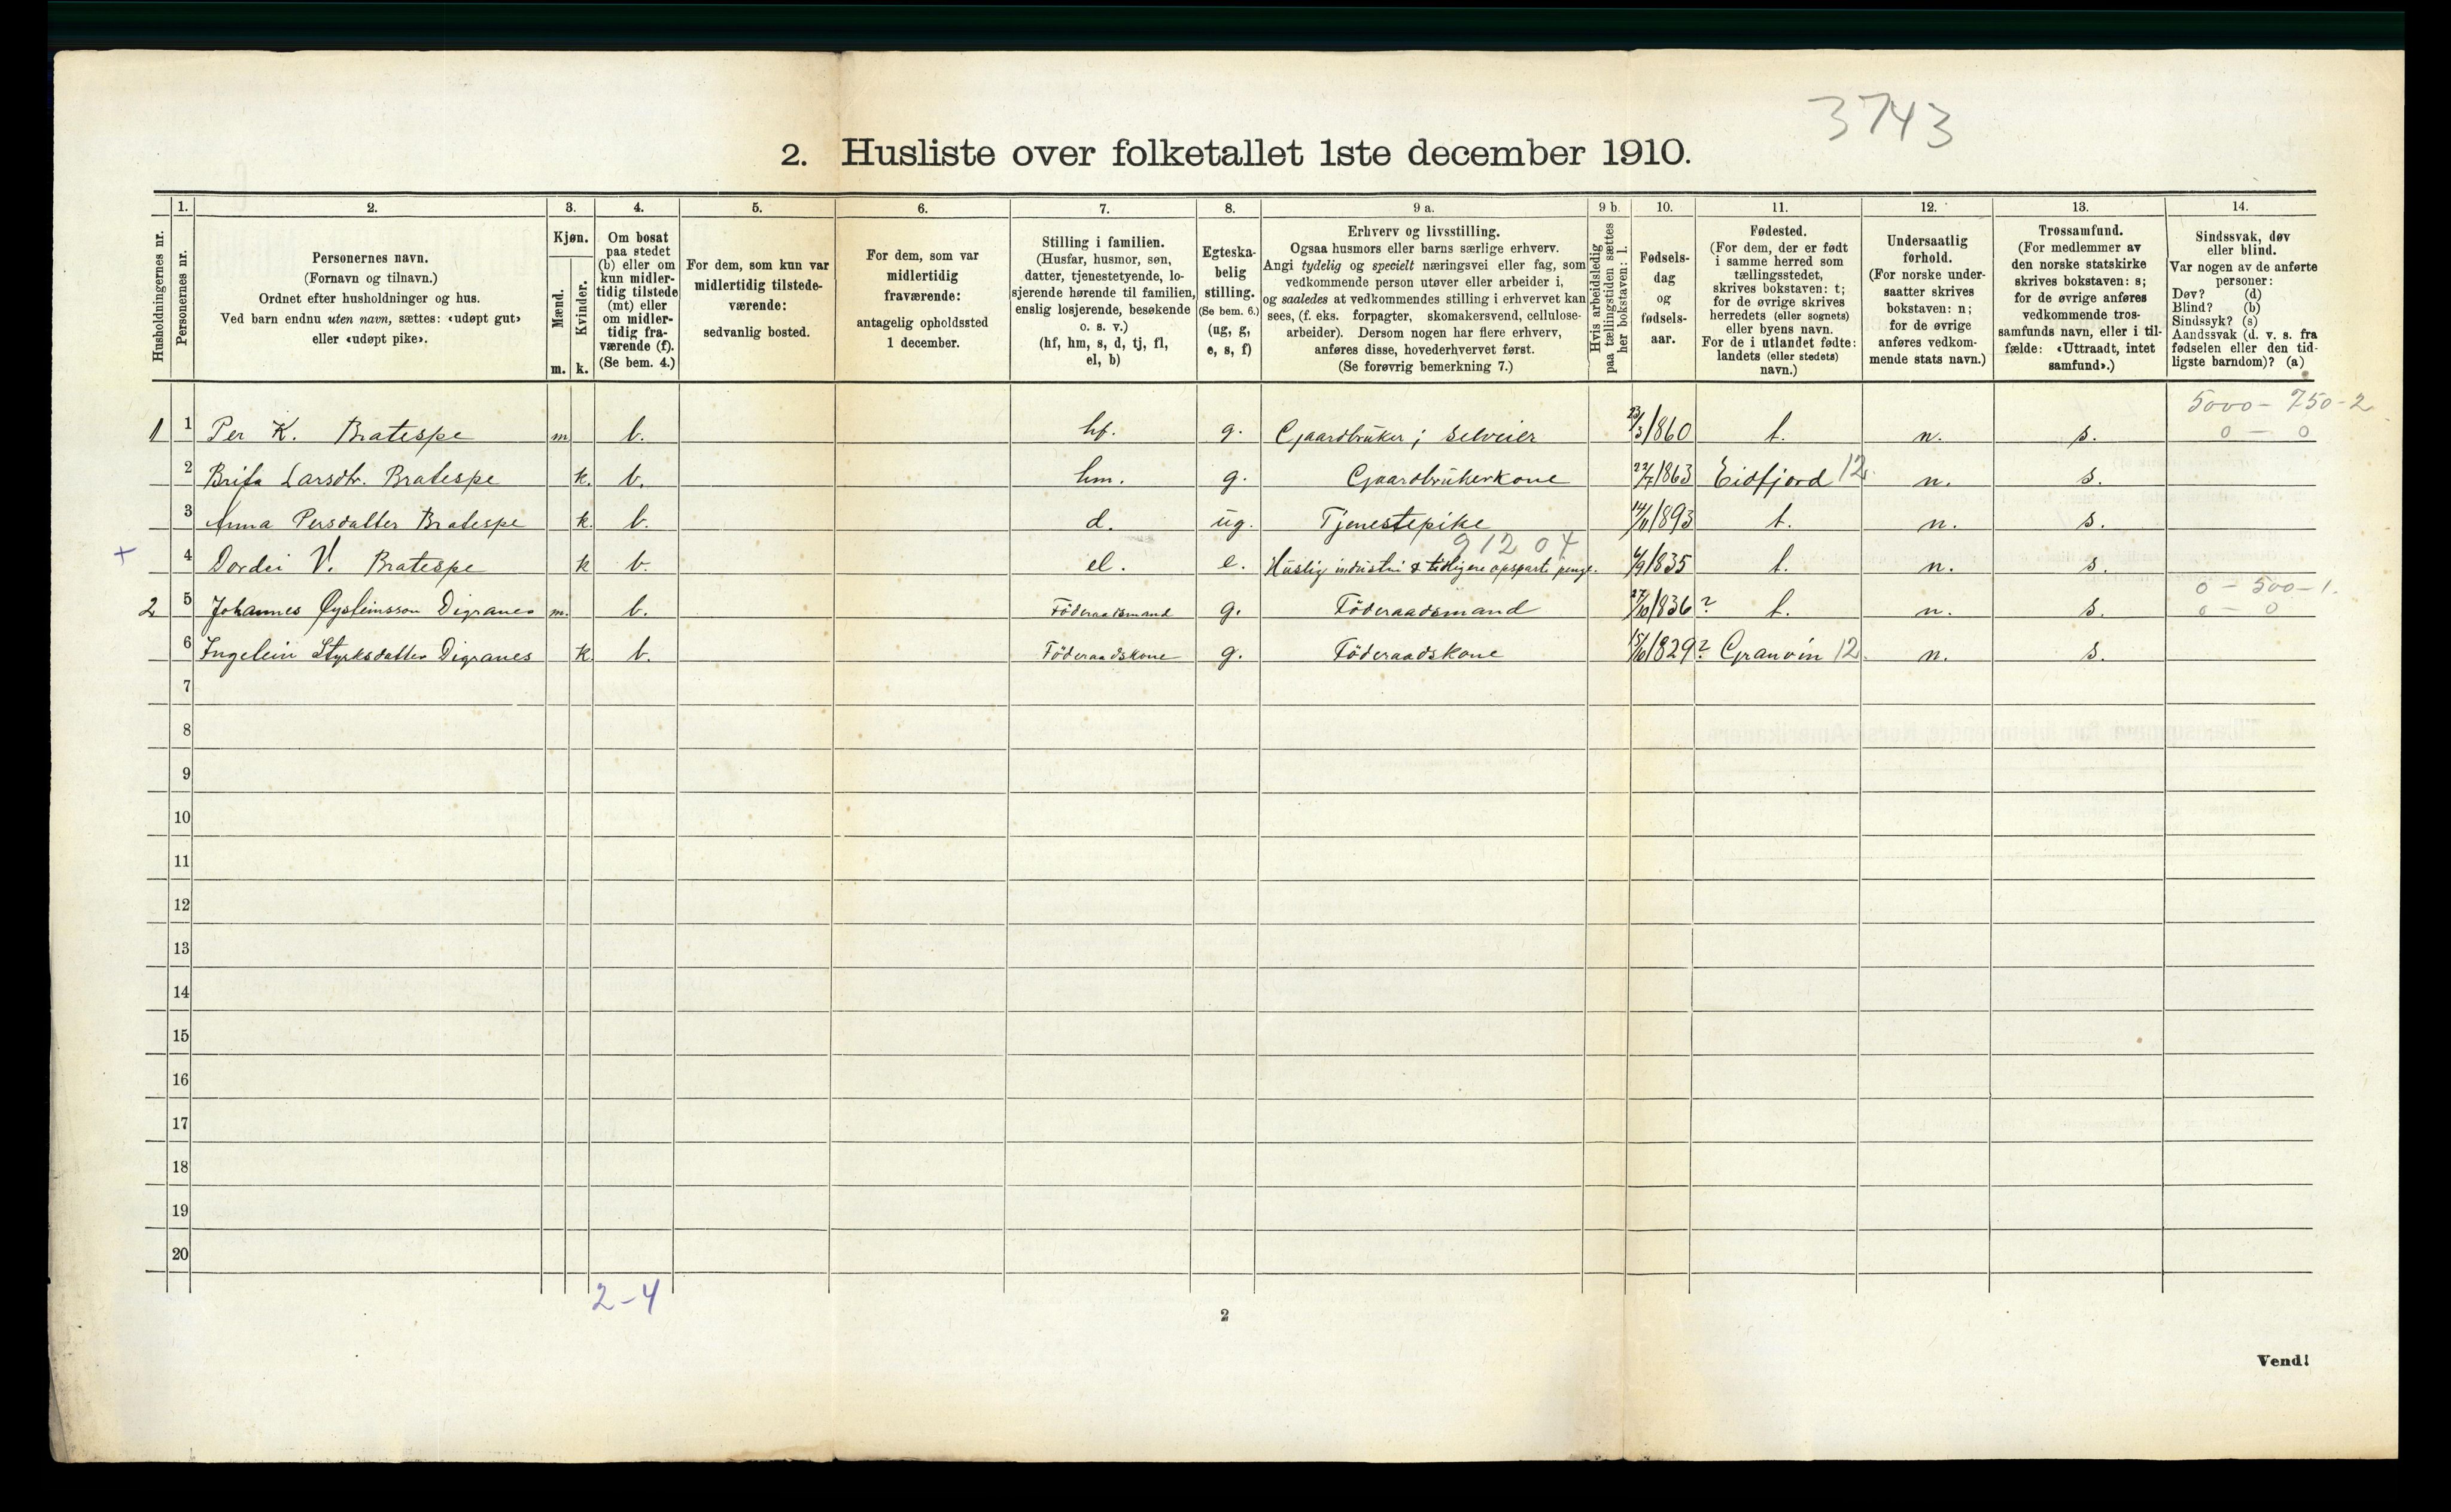 3743
2. Husliste over folketallet 1ste december 1910.
Husholdningernes nr.
1. Personernes nr.
2. Personernes navn.
(Fornavn og tilnavn.)
Ordnet efter husholdninger og hus.
Ved barn endnu uten navn, sættes: «udøpt gut»
eller «udøpt pike».
3. Kjøn.
Mænd. Kvinder.
m. k.
4. Om bosat
paa stedet
(b) eller om
kun midler-
tidig tilstede
(mt) eller
om midler-
tidig fra-
værende (f).
(Se bem. 4.)
5. For dem, som kun var
midlertidig tilstede-
værende:
sedvanlig bosted.
6. For dem, som var
midlertidig
fraværende:
antagelig opholdssted
1 december.
7. Stilling i familien.
(Husfar, husmor, søn,
datter, tjenestetyende, lo-
sjerende hørende til familien,
enslig losjerende, besøkende
o. s. v.)
(hf, hm, s, d, tj, fl,
el, b)
8. Egteska-
belig
stilling.
(Se bem. 6.)
(ug, g,
e, s, f)
9 a. Erhverv og livsstilling.
Ogsaa husmors eller barns særlige erhverv.
Angi tydelig og specielt næringsvei eller fag, som
vedkommende person utøver eller arbeider i,
og saaledes at vedkommendes stilling i erhvervet kan
sees, (f. eks. forpagter, skomakersvend, cellulose-
arbeider). Dersom nogen har flere erhverv,
anføres disse, hovederhvervet først.
(Se forøvrig bemerkning 7.)
9 b. Hvis arbeidsledig
paa tællingstiden sættes
her bokstaven: l.
10. Fødsels-
dag
og
fødsels-
aar.
11. Fødested.
(For dem, der er født
i samme herred som
tællingsstedet,
skrives bokstaven: t;
for de øvrige skrives
herredets (eller sognets)
eller byens navn.
For de i utlandet fødte:
landets (eller stedets)
navn.)
12. Undersaatlig
forhold.
(For norske under-
saatter skrives
bokstaven: n;
for de øvrige
anføres vedkom-
mende stats navn.)
13. Trossamfund.
(For medlemmer av
den norske statskirke
skrives bokstaven: s;
for de øvrige anføres
vedkommende tros-
samfunds navn, eller i til-
fælde: «Uttraadt, intet
samfund».)
14. Sindssvak, døv
eller blind.
Var nogen av de anførte
personer:
Døv? (d)
Blind? (b)
Sindssyk? (s)
Aandssvak (d. v. s. fra
fødselen eller den tid-
ligste barndom)? (a)
5000 - 750 - 2
1 1 Per K. Bratespe m b. hf. g. Gaardbruker; selveier 23/3 1860 t. n. s. 0 - 0
2 Brita Larsdtr. Bratespe k. b. hm. g. Gaardbrukerkone 22/7 1863 Eidfjord 12 n. s.
3 Anna Persdatter Bratespe k. b. d. ug. Tjenestepike 14/11 1893 t. n. s.
91204
+ 4 Dordei V. Bratespe k b. el. e. Huslig industri & tidligere opsparte penge. /9 1835 t. n. s.
0 - 500 - 1.
2 5 Johannes Øysteinsson Digranes m. b. Föderaadsmand g. Föderaadsmand 27/10 1836? t. n. s. 0 - 0
6 Ingelein Styrksdatter Digranes k b. Föderaadskone g. Föderaadskone 15/10 1829? Granvin 12. n. s.
7
8
9
10
11
12
13
14
15
16
17
18
19
20
2-4
2
Vend!